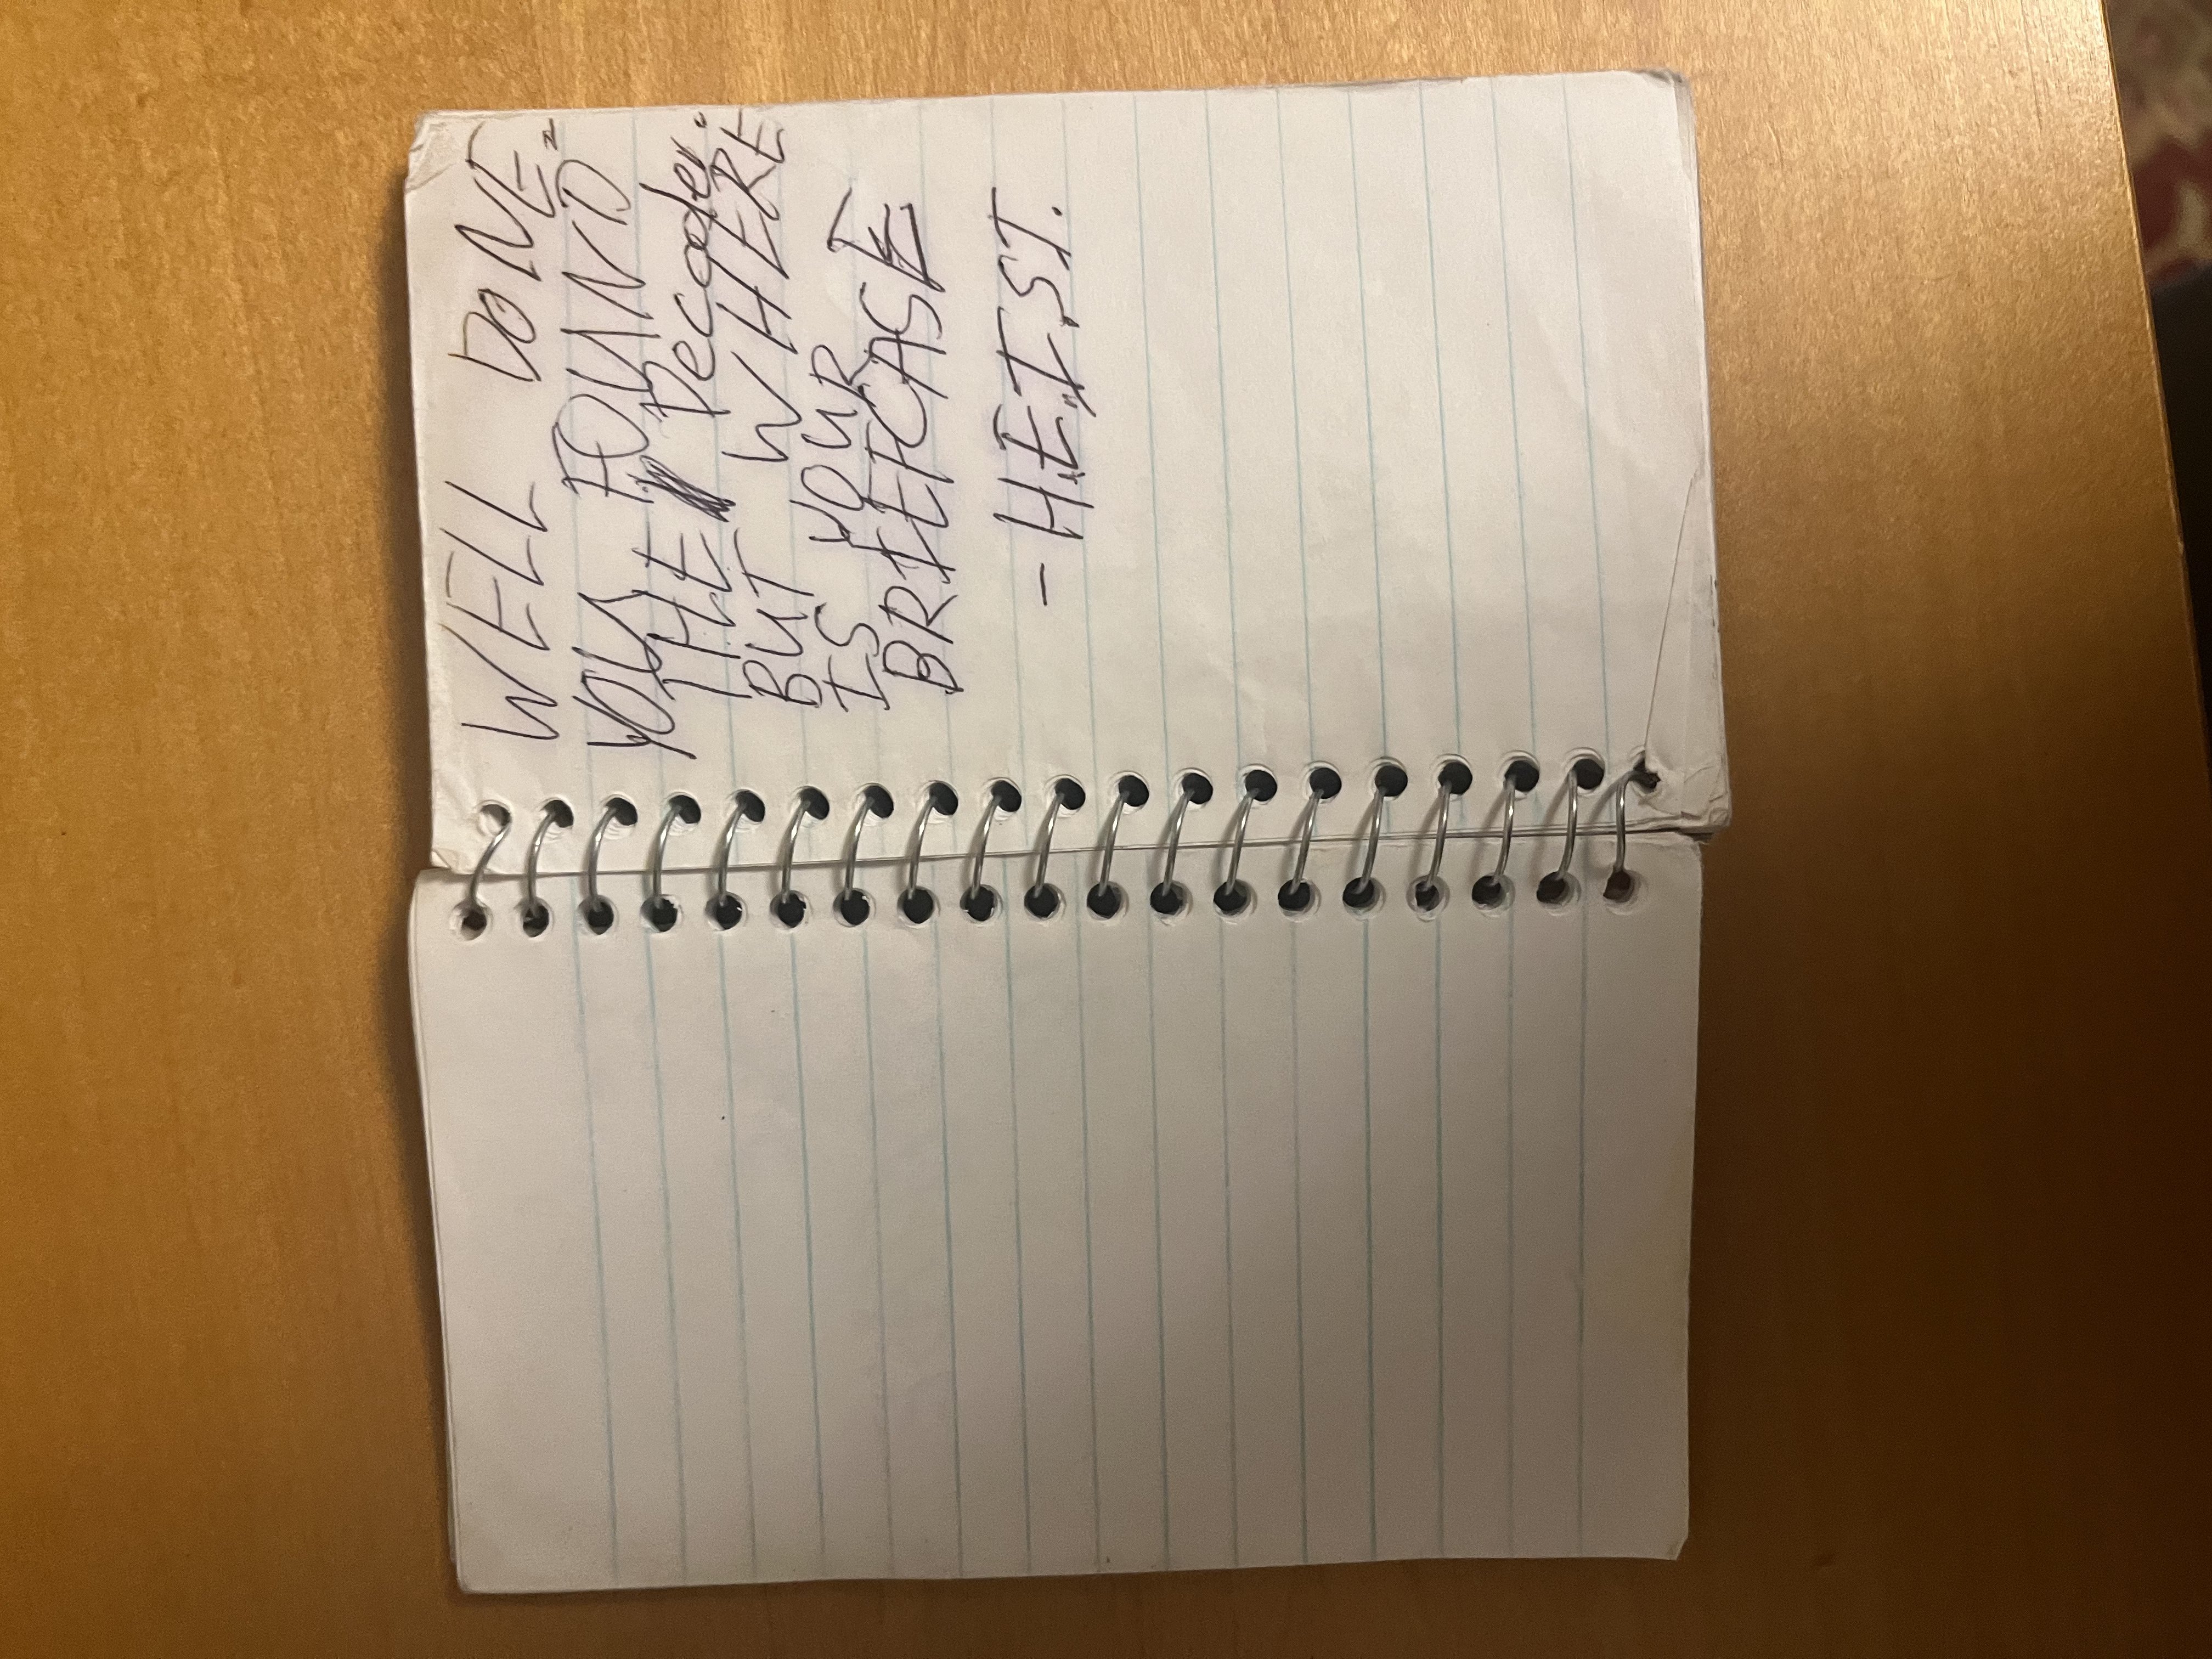 WELL DONE.
YOU FOUND
THE Decoder.
BUT WHERE
IS YOUR
BRIEFCASE
- H.E.I.S.T.